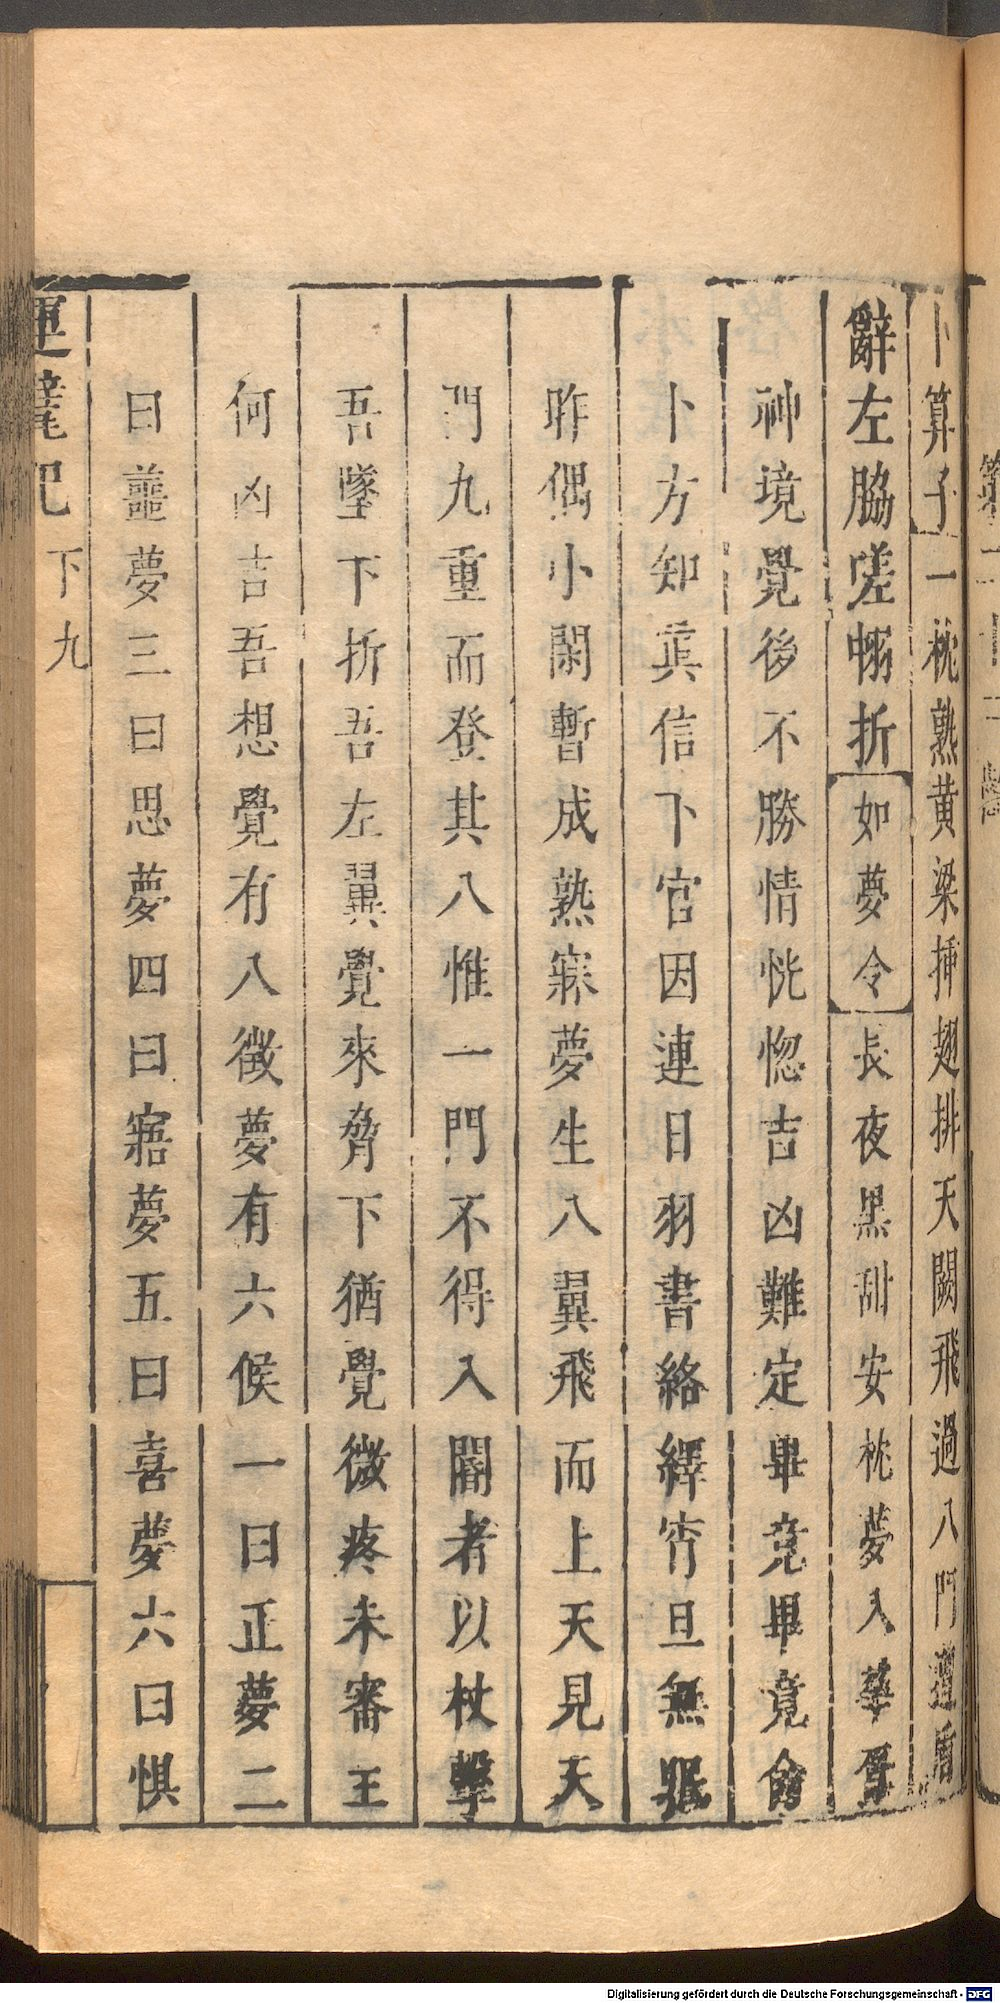 卜算子一枕熟黄梁揷翅排天闕飛過八門遭
辭左脇嗟翎折如夢令長夜黑甜安枕夢入華胥
神境覺後不勝情恍惚吉凶難定畢竟畢竟
卜方知眞信下官因連日羽書絡繹宵旦無
昨偶小閑暫成熟寐夢生八翼飛而上天見天
門九重而登其八惟一門不得入閽者以杖擊
吾墜下折吾左翼覺來脅下猶覺微疼未審主
何凶吉吾想覺有八徵夢有六候一曰正夢二
曰噩夢三曰思夢四曰寤夢五曰喜夢六曰惧
運甓記
下九
Digitalisierung gefördert durch die Deutsche Forschungsgemeinschaft - DFG